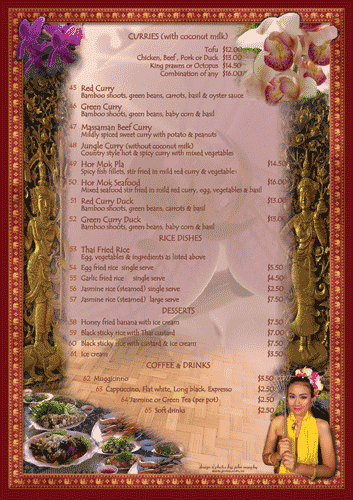 CURRIES (with coconut milk)
Tofu $12.00
Chicken, Beef, Pork or Duck $13.00
King prawns or Octopus $14.50
Combination of any $16.00
45 Red Curry
Bamboo shoots, green beans, carrots, basil & oyster sauce
46 Green Curry
Bamboo shoots, green beans, baby corn & basil
47 Massaman Beef Curry
Mildly spiced sweet curry with potato & peanuts
48 Jungle Curry (without coconut milk)
Country style hot & spicy curry with mixed vegetables
49 Hor Mok Pla $14.50
Spicy fish fillets, stir fried in mild red curry & vegetable
50 Hor Mok Seafood $16.00
Mixed seafood stir fried in mild red curry, egg, vegetables & basil
51 Red Curry Duck $13.00
Bamboo shoots, green beans, carrots & basil
52 Green Curry Duck $13.00
Bamboo shoots, green beans, baby corn & basil
RICE DISHES
53 Thai Fried Rice
Egg, vegetables & ingredients as listed above
54 Egg fried rice single serve $5.50
55 Garlic fried rice single serve $4.50
56 Jasmine rice (steamed) single serve $2.50
57 Jasmine rice (steamed) large serve $7.50
DESSERTS
58 Honey fried banana with ice cream $7.50
59 Black sticky rice with Thai custard $7.00
60 Black sticky rice with custard & ice cream $7.50
61 Ice cream $3.50
COFFEE & DRINKS
62 Muggicinno $3.50
63 Cappuccino, Flat white, Long black, Espresso $2.50
64 Jasmine or Green Tea (per pot) $2.50
65 Soft drinks $2.50